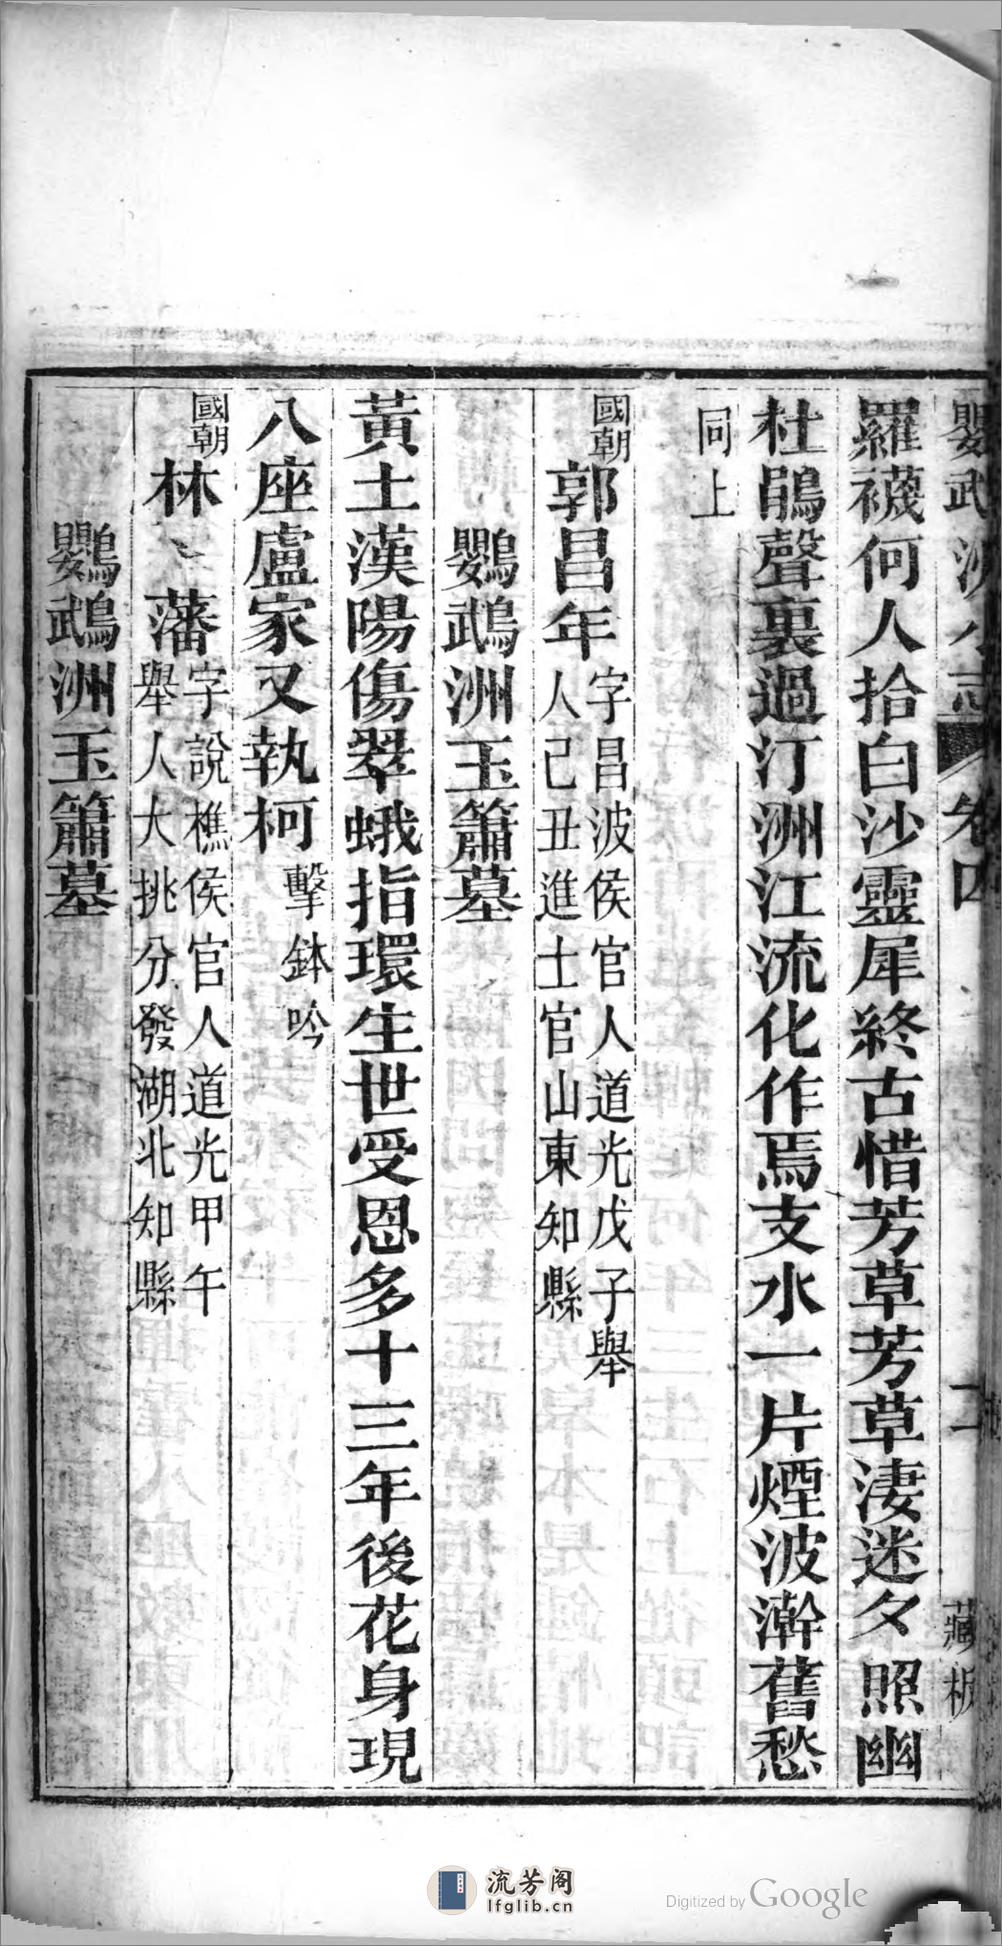 羅襪何人拾白沙靈犀終古惜芳草芳草淒迷夕照幽
杜鵑聲裏過汀洲江流化作焉支水一片煙波澣舊愁
同上
國朝郭昌年字昌波侯官人道光戊子舉
人己丑進士官山東知縣
鸚鵡洲玉簫墓
黃土漢陽傷翠蛾指環生世受恩多十三年後花身現
八座盧家又執柯擊鉢吟
國朝林藩字說樵侯官人道光甲午
舉人大挑分發湖北知縣
鸚鵡洲玉簫墓
流芳阁
lfglib.cn
Digitized by Google
卷四
二
藏板